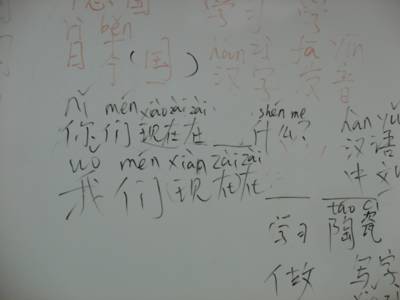 国 学习
běn
日本(国) hàn fā yīn
汉字 发音
nǐ mén zài zài shén me hàn yǔ
你们现在在___什么? 汉语
wǒ mén xiàn zài zài
我们现在在___ ___ 中文
táo cí
学习 陶瓷
做 写字